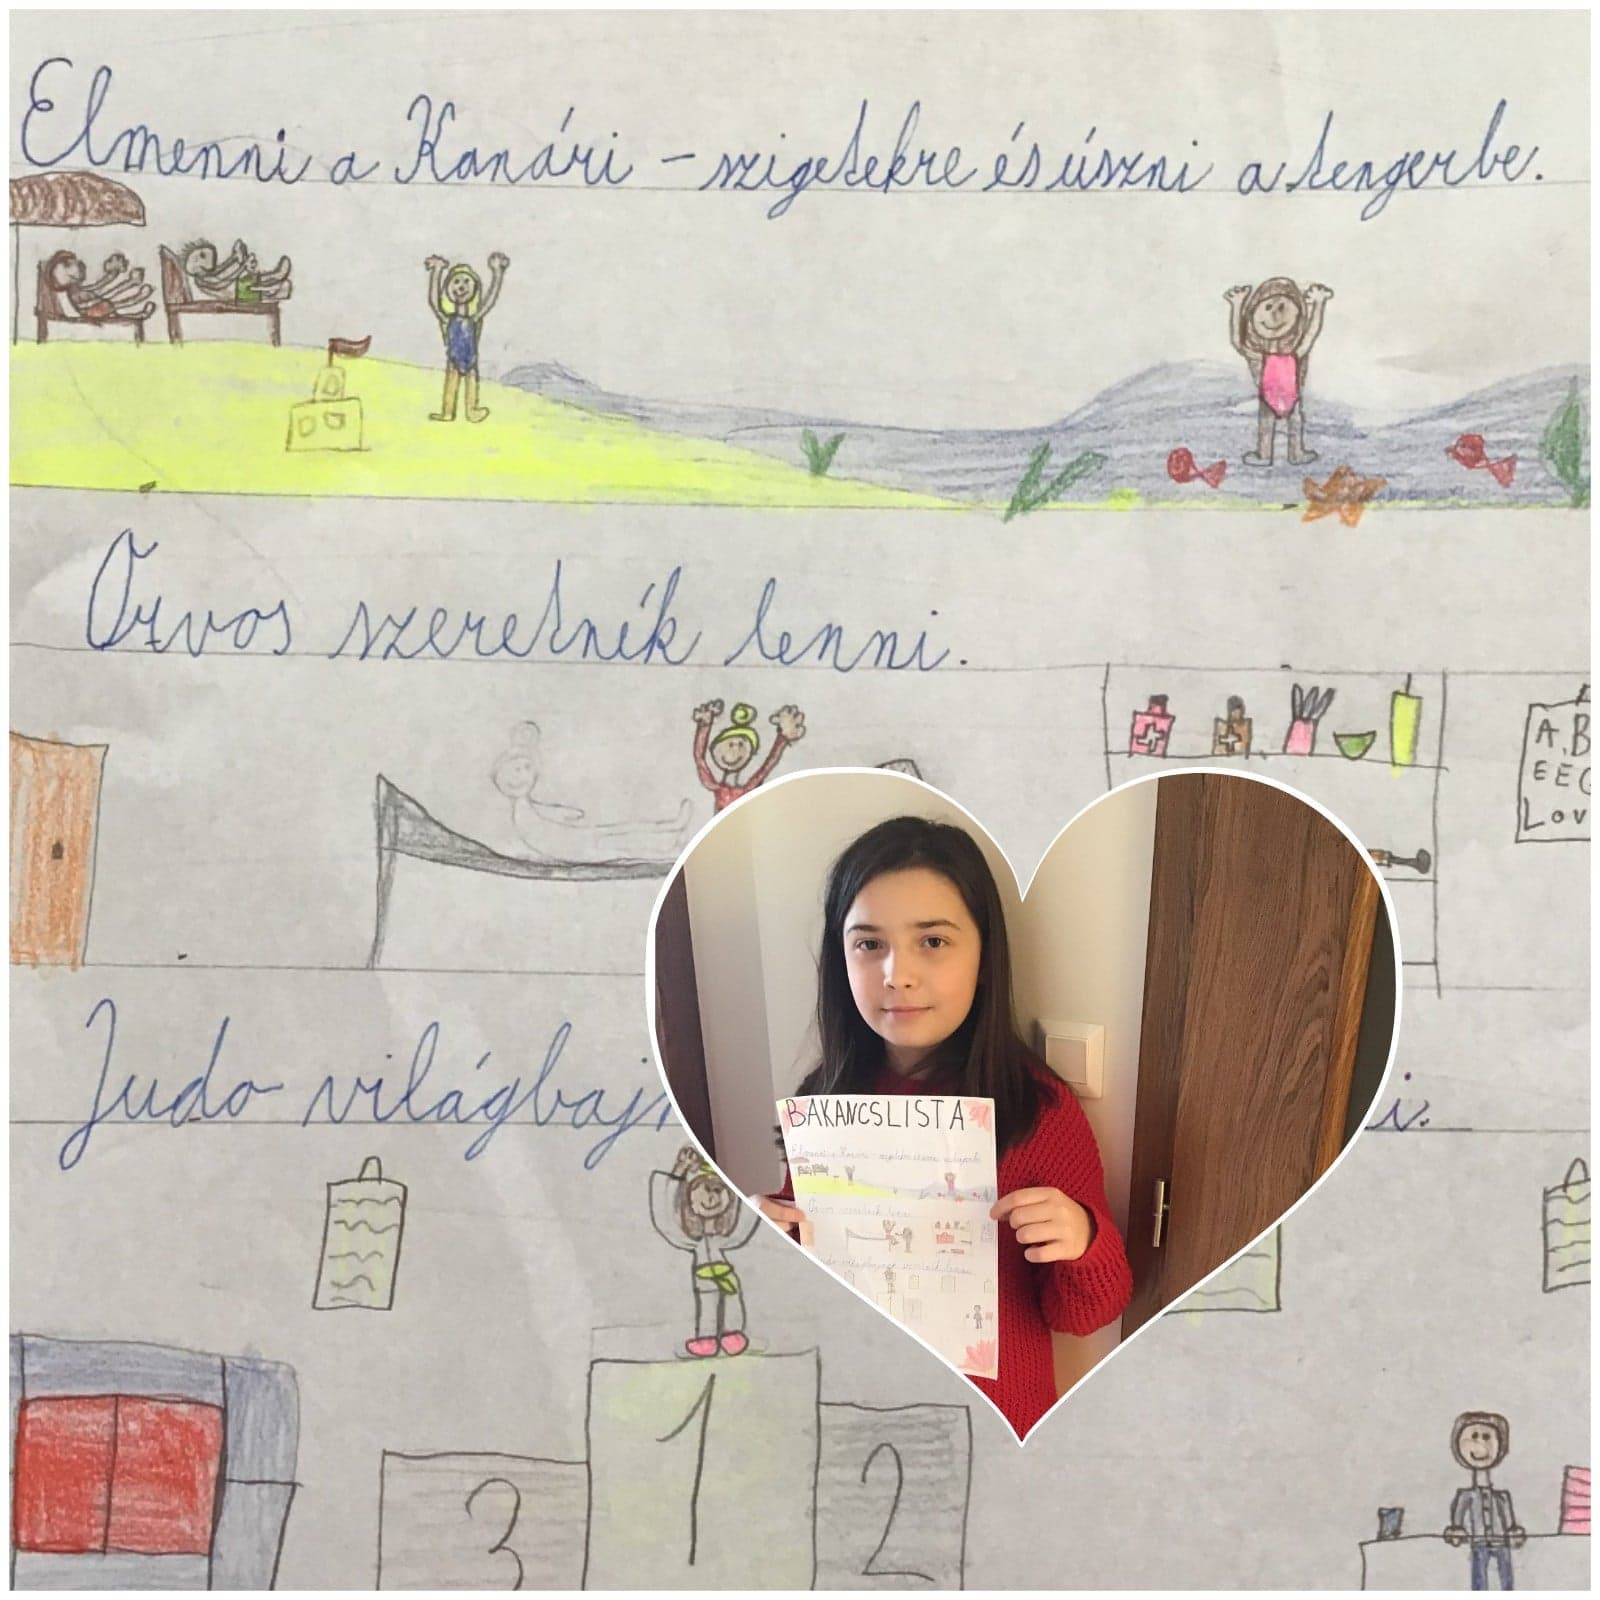 Elmenni a Kanári - szigetekre és úszni a tengerbe.
Orvos szeretnék lenni.
A, B
E E
Lov
Judo világbaj
i.
3 1 2
BAKANCSLISTA
Elmenni a Kanári - szigetekre és úszni a
Orvos szeretnék lenni.